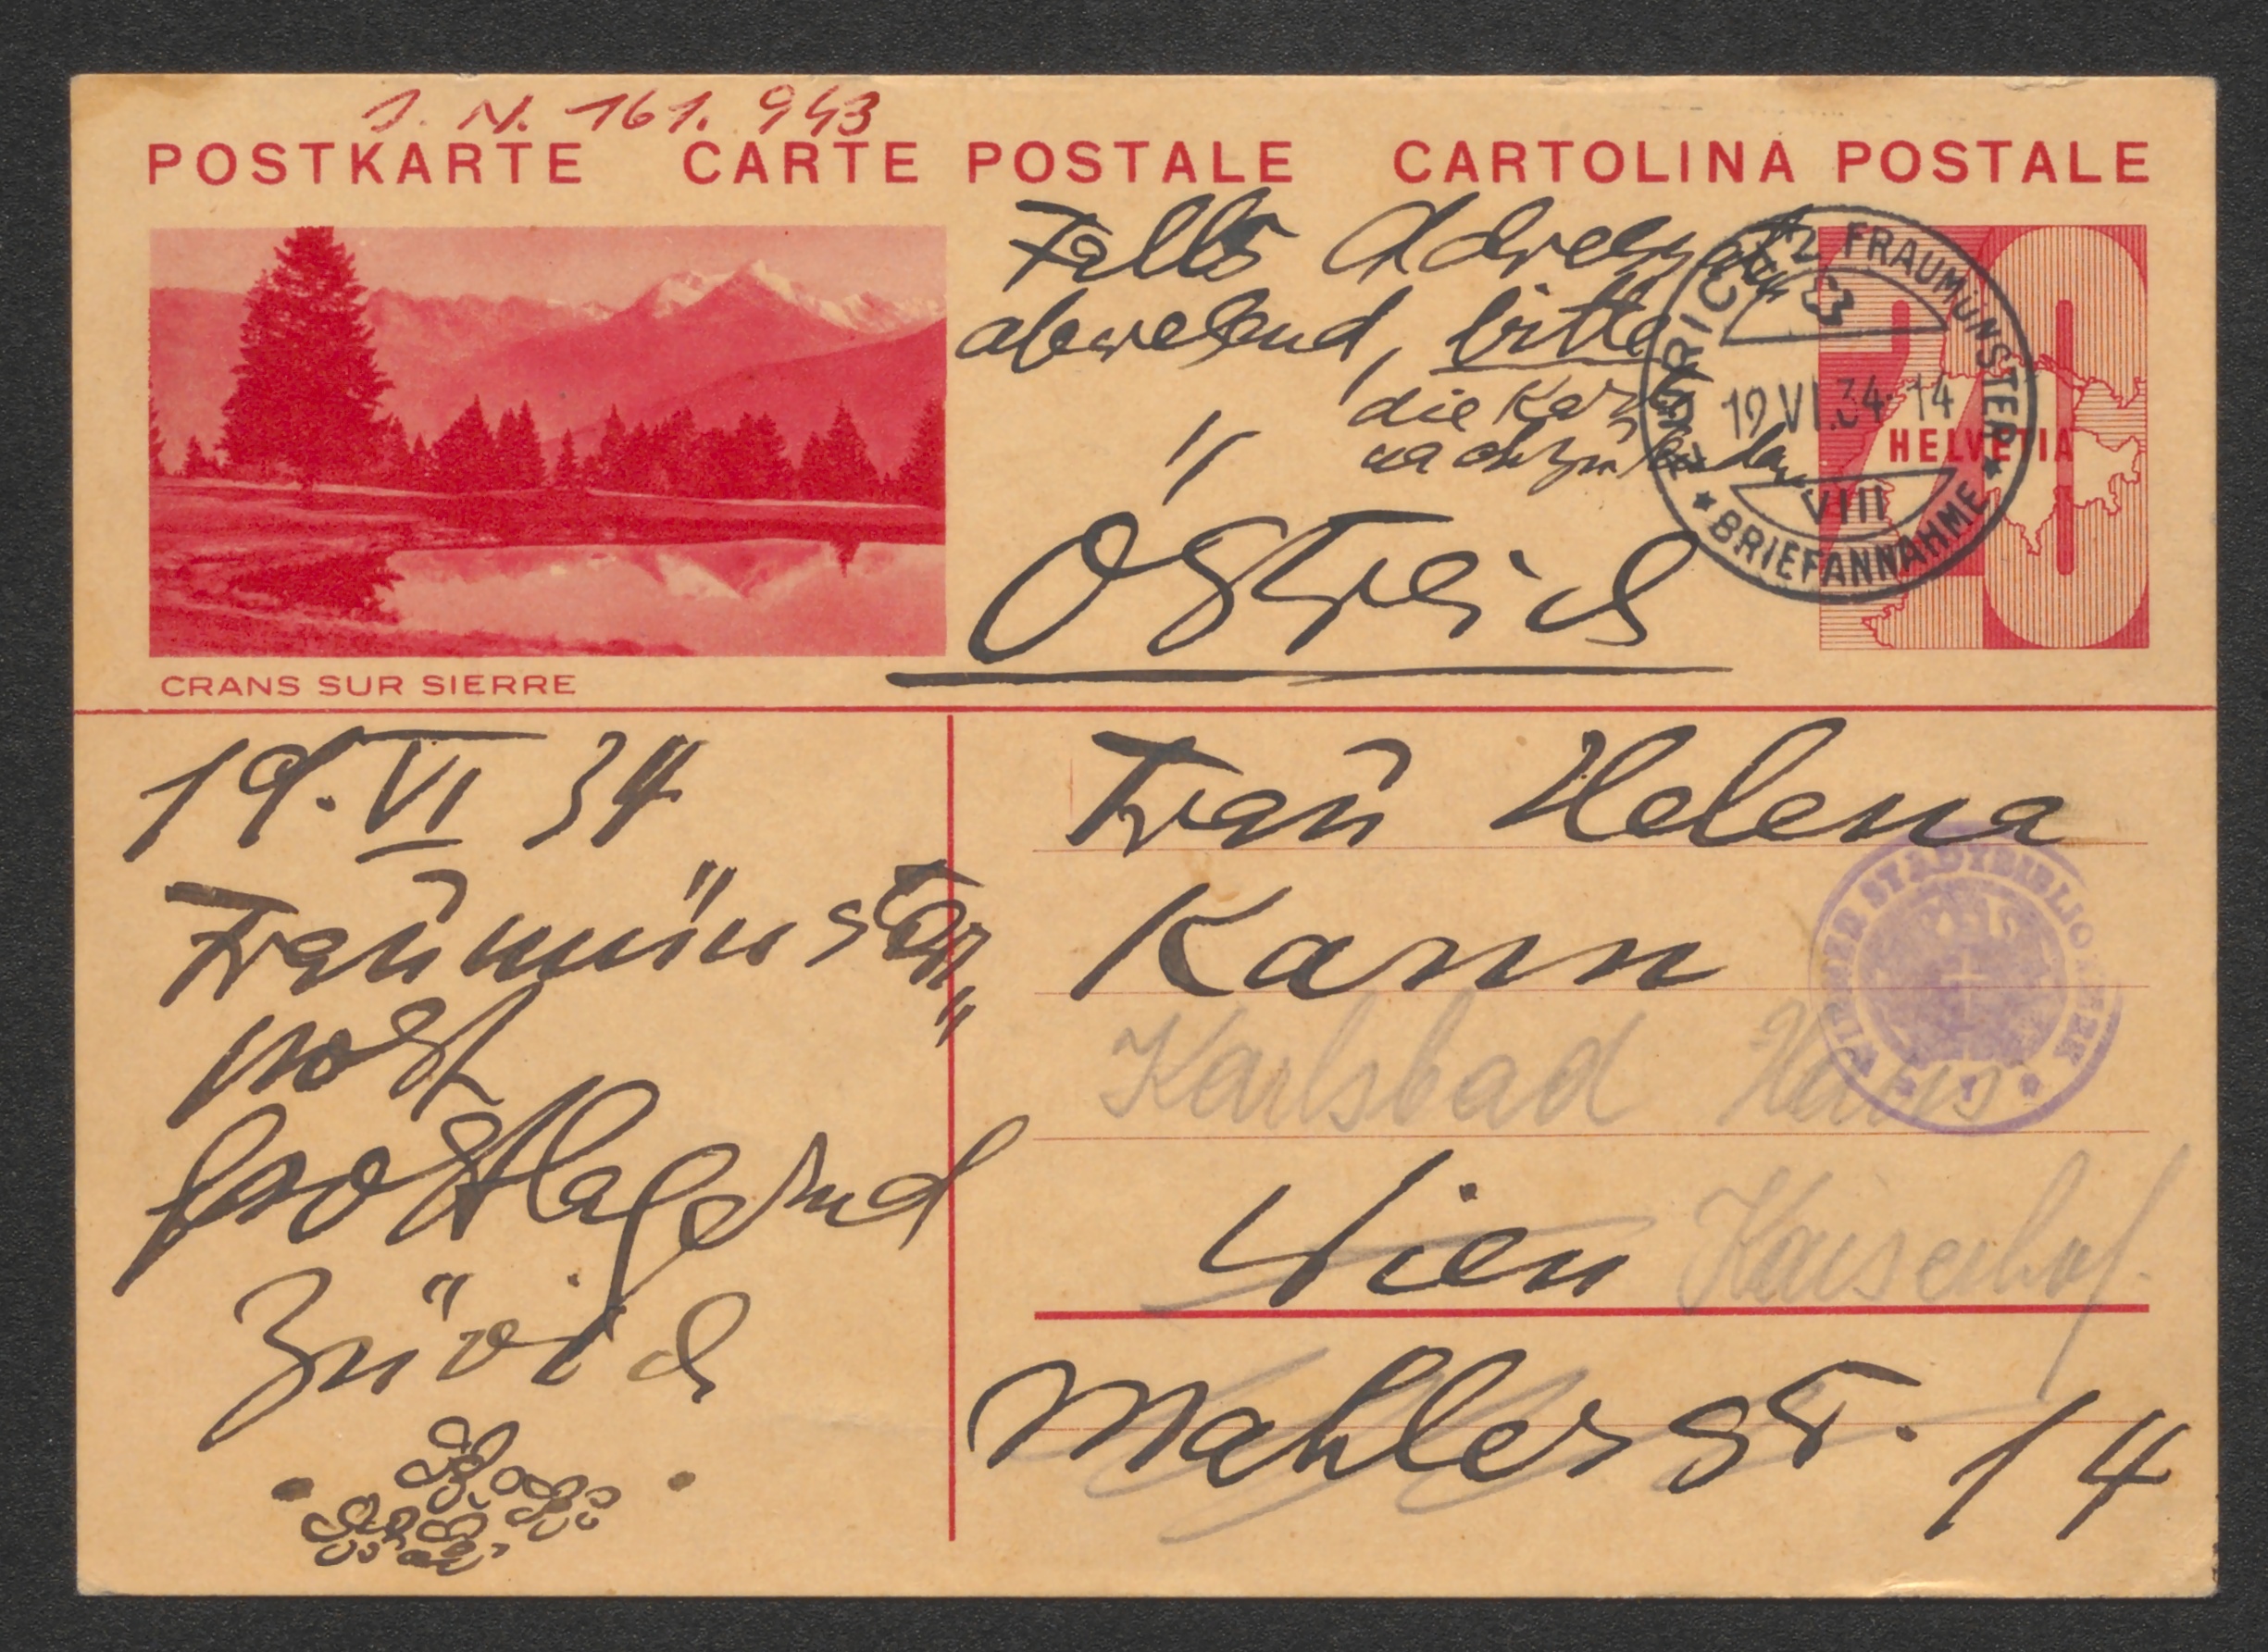 J. N. 161. 943
POSTKARTE CARTE POSTALE CARTOLINA POSTALE
Falls Adressat
abwesend, bitte
die Karte
nachzusenden
Östreich
ZÜRICH 2 FRAUMÜNSTER
19.VI.34-14
VIII
BRIEFANNAHME
20
HELVETIA
CRANS SUR SIERRE
19. VI 34
Fraumünster
post
postlagernd
Zürich
Frau Helena
Kann
WIENER STADTBIBLIOTHEK
Karlsbad Haus
Wien Kaiserhof.
Mahlerst. 14